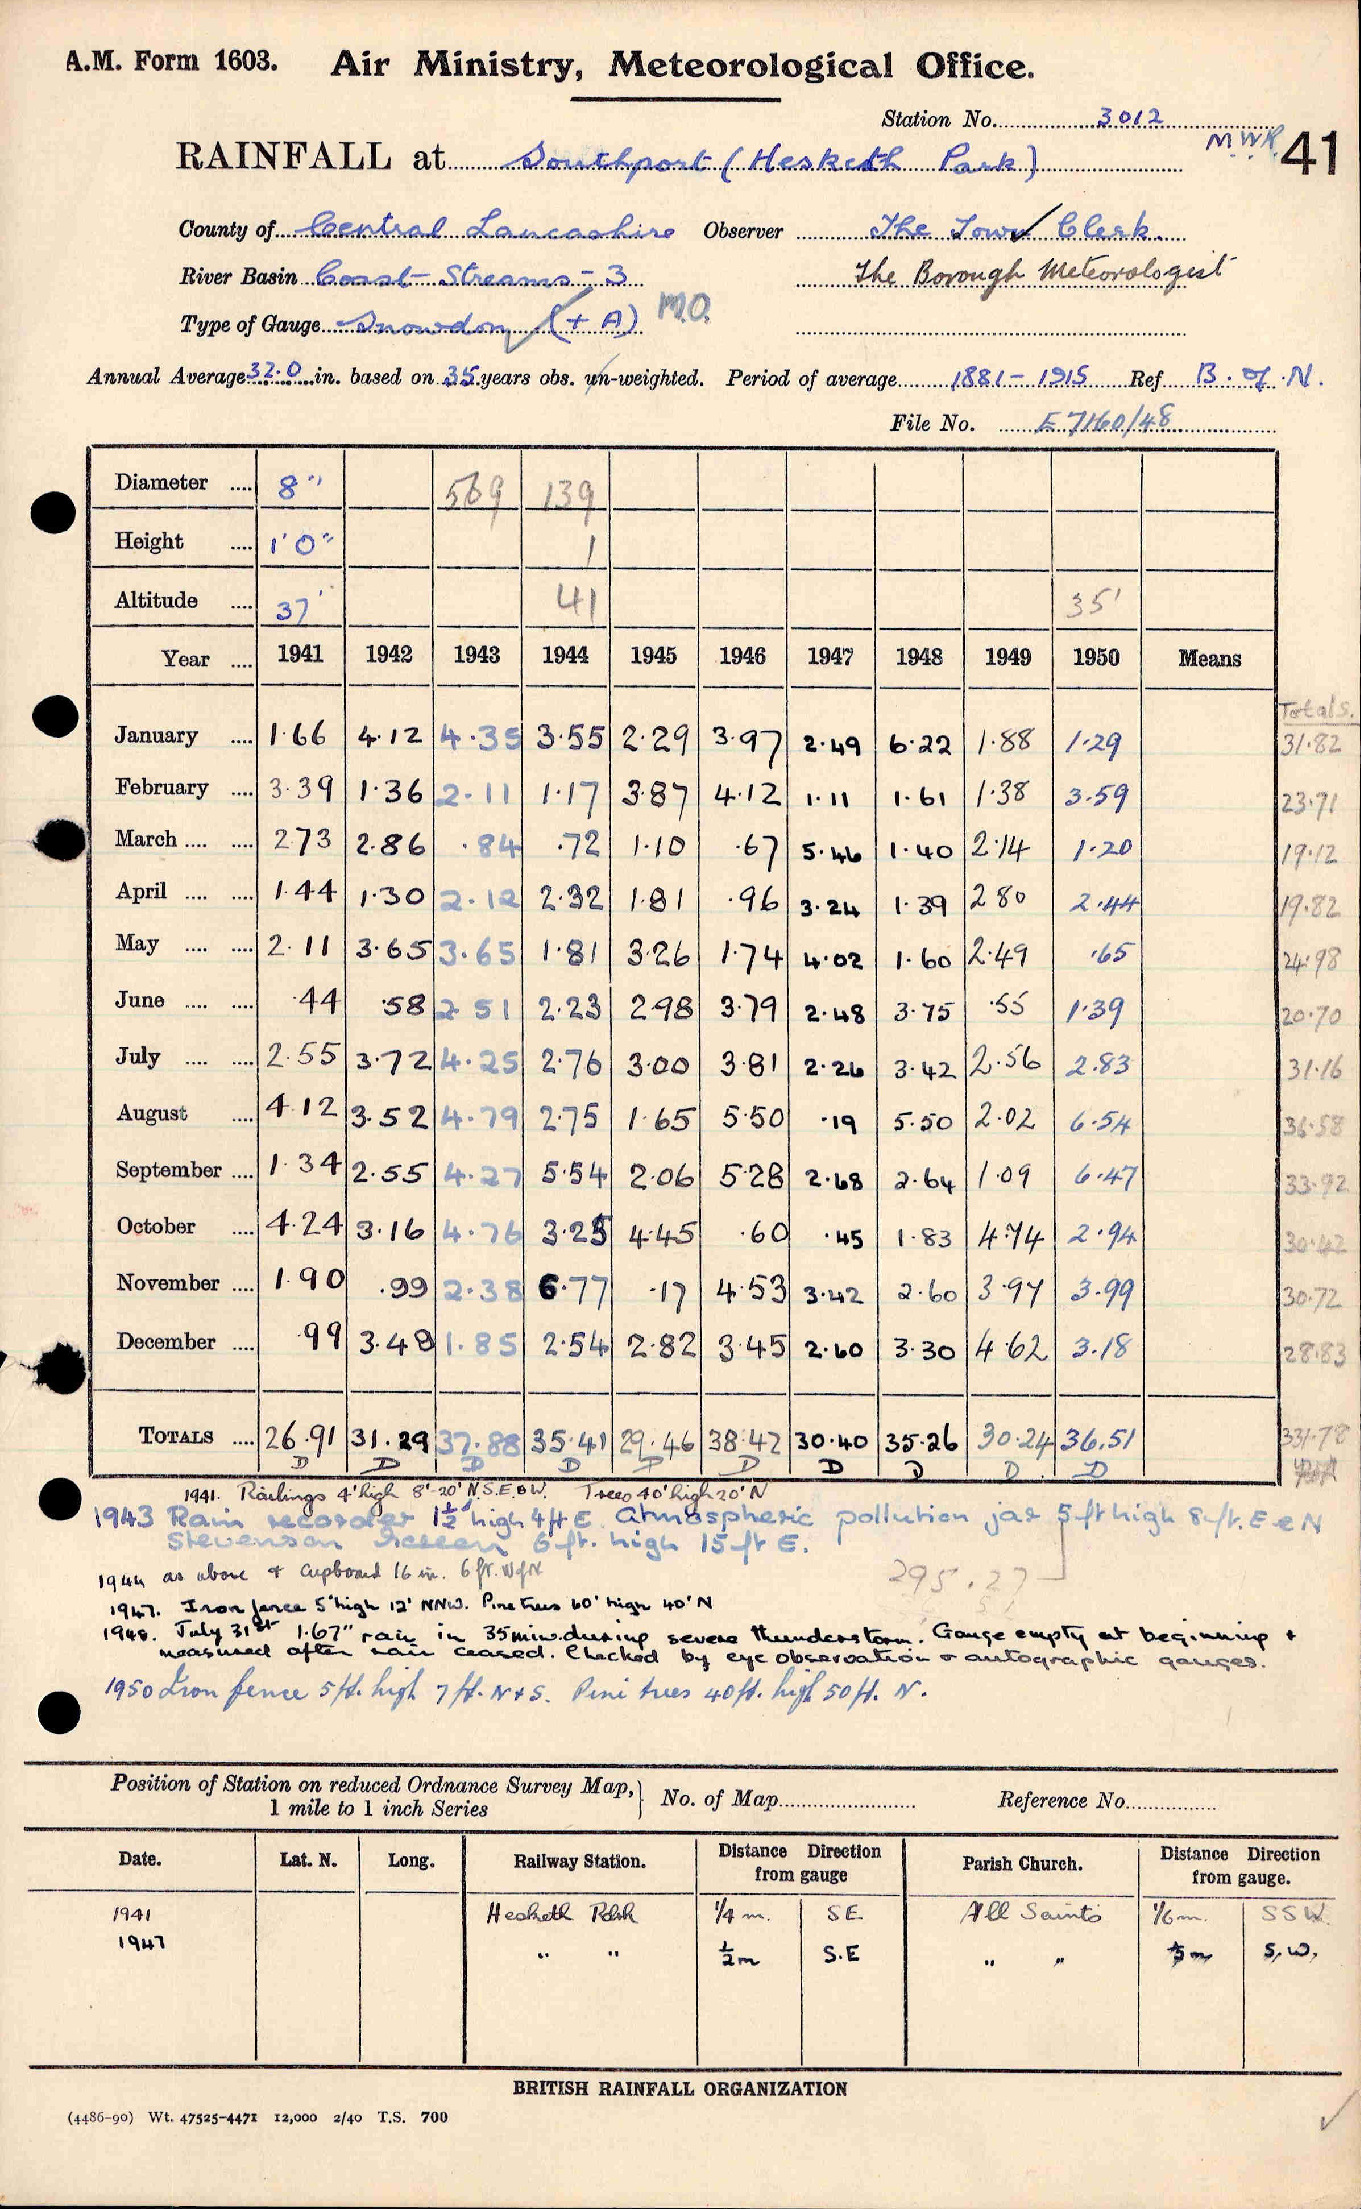 A.M. Form 1603. Air Ministry, Meteorological Office.
Station No. 3012
M.W.R. 41
RAINFALL at Southport (Hesketh Park)
County of Central Lancashire Observer The Town Clerk.
River Basin Coast Streams - 3 The Borough Meteorologist
Type of Gauge Snowdon (+ A) M.O.
Annual Average 32.0 in. based on 35 years obs. un-weighted. Period of average 1881-1915 Ref B. of N.
File No. E 7160/48
Diameter .... 8" 569 139
Height .... 1'0" 1
Altitude .... 37' 41 35'
Year .... 1941 1942 1943 1944 1945 1946 1947 1948 1949 1950 Means
Totals.
January .... 1.66 4.12 4.35 3.55 2.29 3.97 2.49 6.22 1.88 1.29 31.82
February .... 3.39 1.36 2.11 1.17 3.87 4.12 1.11 1.61 1.38 3.59 23.71
March .... .... 2.73 2.86 .84 .72 1.10 .67 5.46 1.40 2.14 1.20 19.12
April .... .... 1.44 1.30 2.12 2.32 1.81 .96 3.24 1.39 2.80 2.44 19.82
May .... .... 2.11 3.65 3.65 1.81 3.26 1.74 4.02 1.60 2.49 .65 24.98
June .... .... .44 .58 2.51 2.23 2.98 3.79 2.48 3.75 .55 1.39 20.70
July .... .... 2.55 3.72 4.25 2.76 3.00 3.81 2.26 3.42 2.56 2.83 31.16
August .... 4.12 3.52 4.79 2.75 1.65 5.50 .19 5.50 2.02 6.54 36.58
September .... 1.34 2.55 4.27 5.54 2.06 5.28 2.68 2.64 1.09 6.47 33.92
October .... 4.24 3.16 4.76 3.25 4.45 .60 .45 1.83 4.74 2.94 30.42
November .... 1.90 .99 2.38 6.77 .17 4.53 3.42 2.60 3.97 3.99 30.72
December .... .99 3.48 1.85 2.54 2.82 3.45 2.60 3.30 4.62 3.18 28.83
TOTALS .... 26.91 31.29 37.88 35.41 29.46 38.42 30.40 35.26 30.24 36.51 331.78
D D D D D D D D D D
1941. Railings 4' high 8'-20' N.S.E.&W. Trees 40' high 20' N
1943 Rain recorder 1½' high 4ft E. Atmospheric pollution jar 5ft high 8ft. E & N
Stevenson Screen 6ft. high 15ft E.
1944 as above + Cupboard 16 in. 6 ft. W of N
295.27
1947. Iron fence 5' high 12' NNW. Pine trees 60' high 40' N
1948. July 31st 1.67" rain in 35 min. during severe thunderstorm. Gauge empty at beginning +
measured after rain ceased. Checked by eye observation & autographic gauges.
1950 Iron fence 5ft. high 7ft. N & S. Pine trees 40ft. high 50ft. N.
Position of Station on reduced Ordnance Survey Map,
1 mile to 1 inch Series
No. of Map Reference No.
Date. Lat. N. Long. Railway Station. Distance Direction from gauge Parish Church. Distance Direction from gauge.
1941 Hesketh Park 1/4 m. SE All Saints 1/6 m. SSW.
1947 " " ½ m S.E " " S.W.
BRITISH RAINFALL ORGANIZATION
(4486-90) Wt. 47525-4471 12,000 2/40 T.S. 700